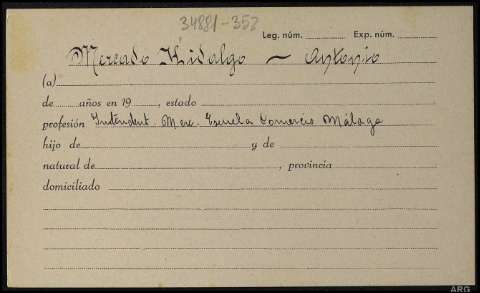 34881-353
Leg. núm. Exp. núm.
Mercado Hidalgo — Antonio
(a)
de años en 19 , estado
profesión Intendent. Merc. Escuela Comercio Málaga
hijo de y de
natural de , provincia
domiciliado
ARG